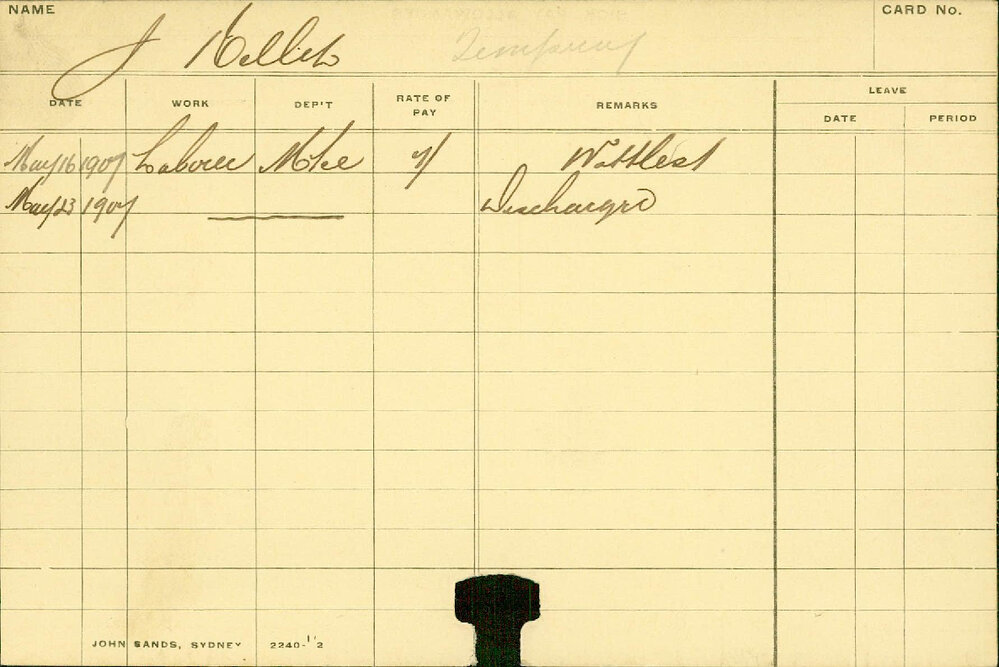 NAME
CARD No.
J Kellick Temporary
DATE WORK DEP'T RATE OF PAY REMARKS LEAVE
DATE PERIOD
May 16 1907 Laborer 7/
May 23 1907 Discharged
JOHN SANDS, SYDNEY 2240-1'2